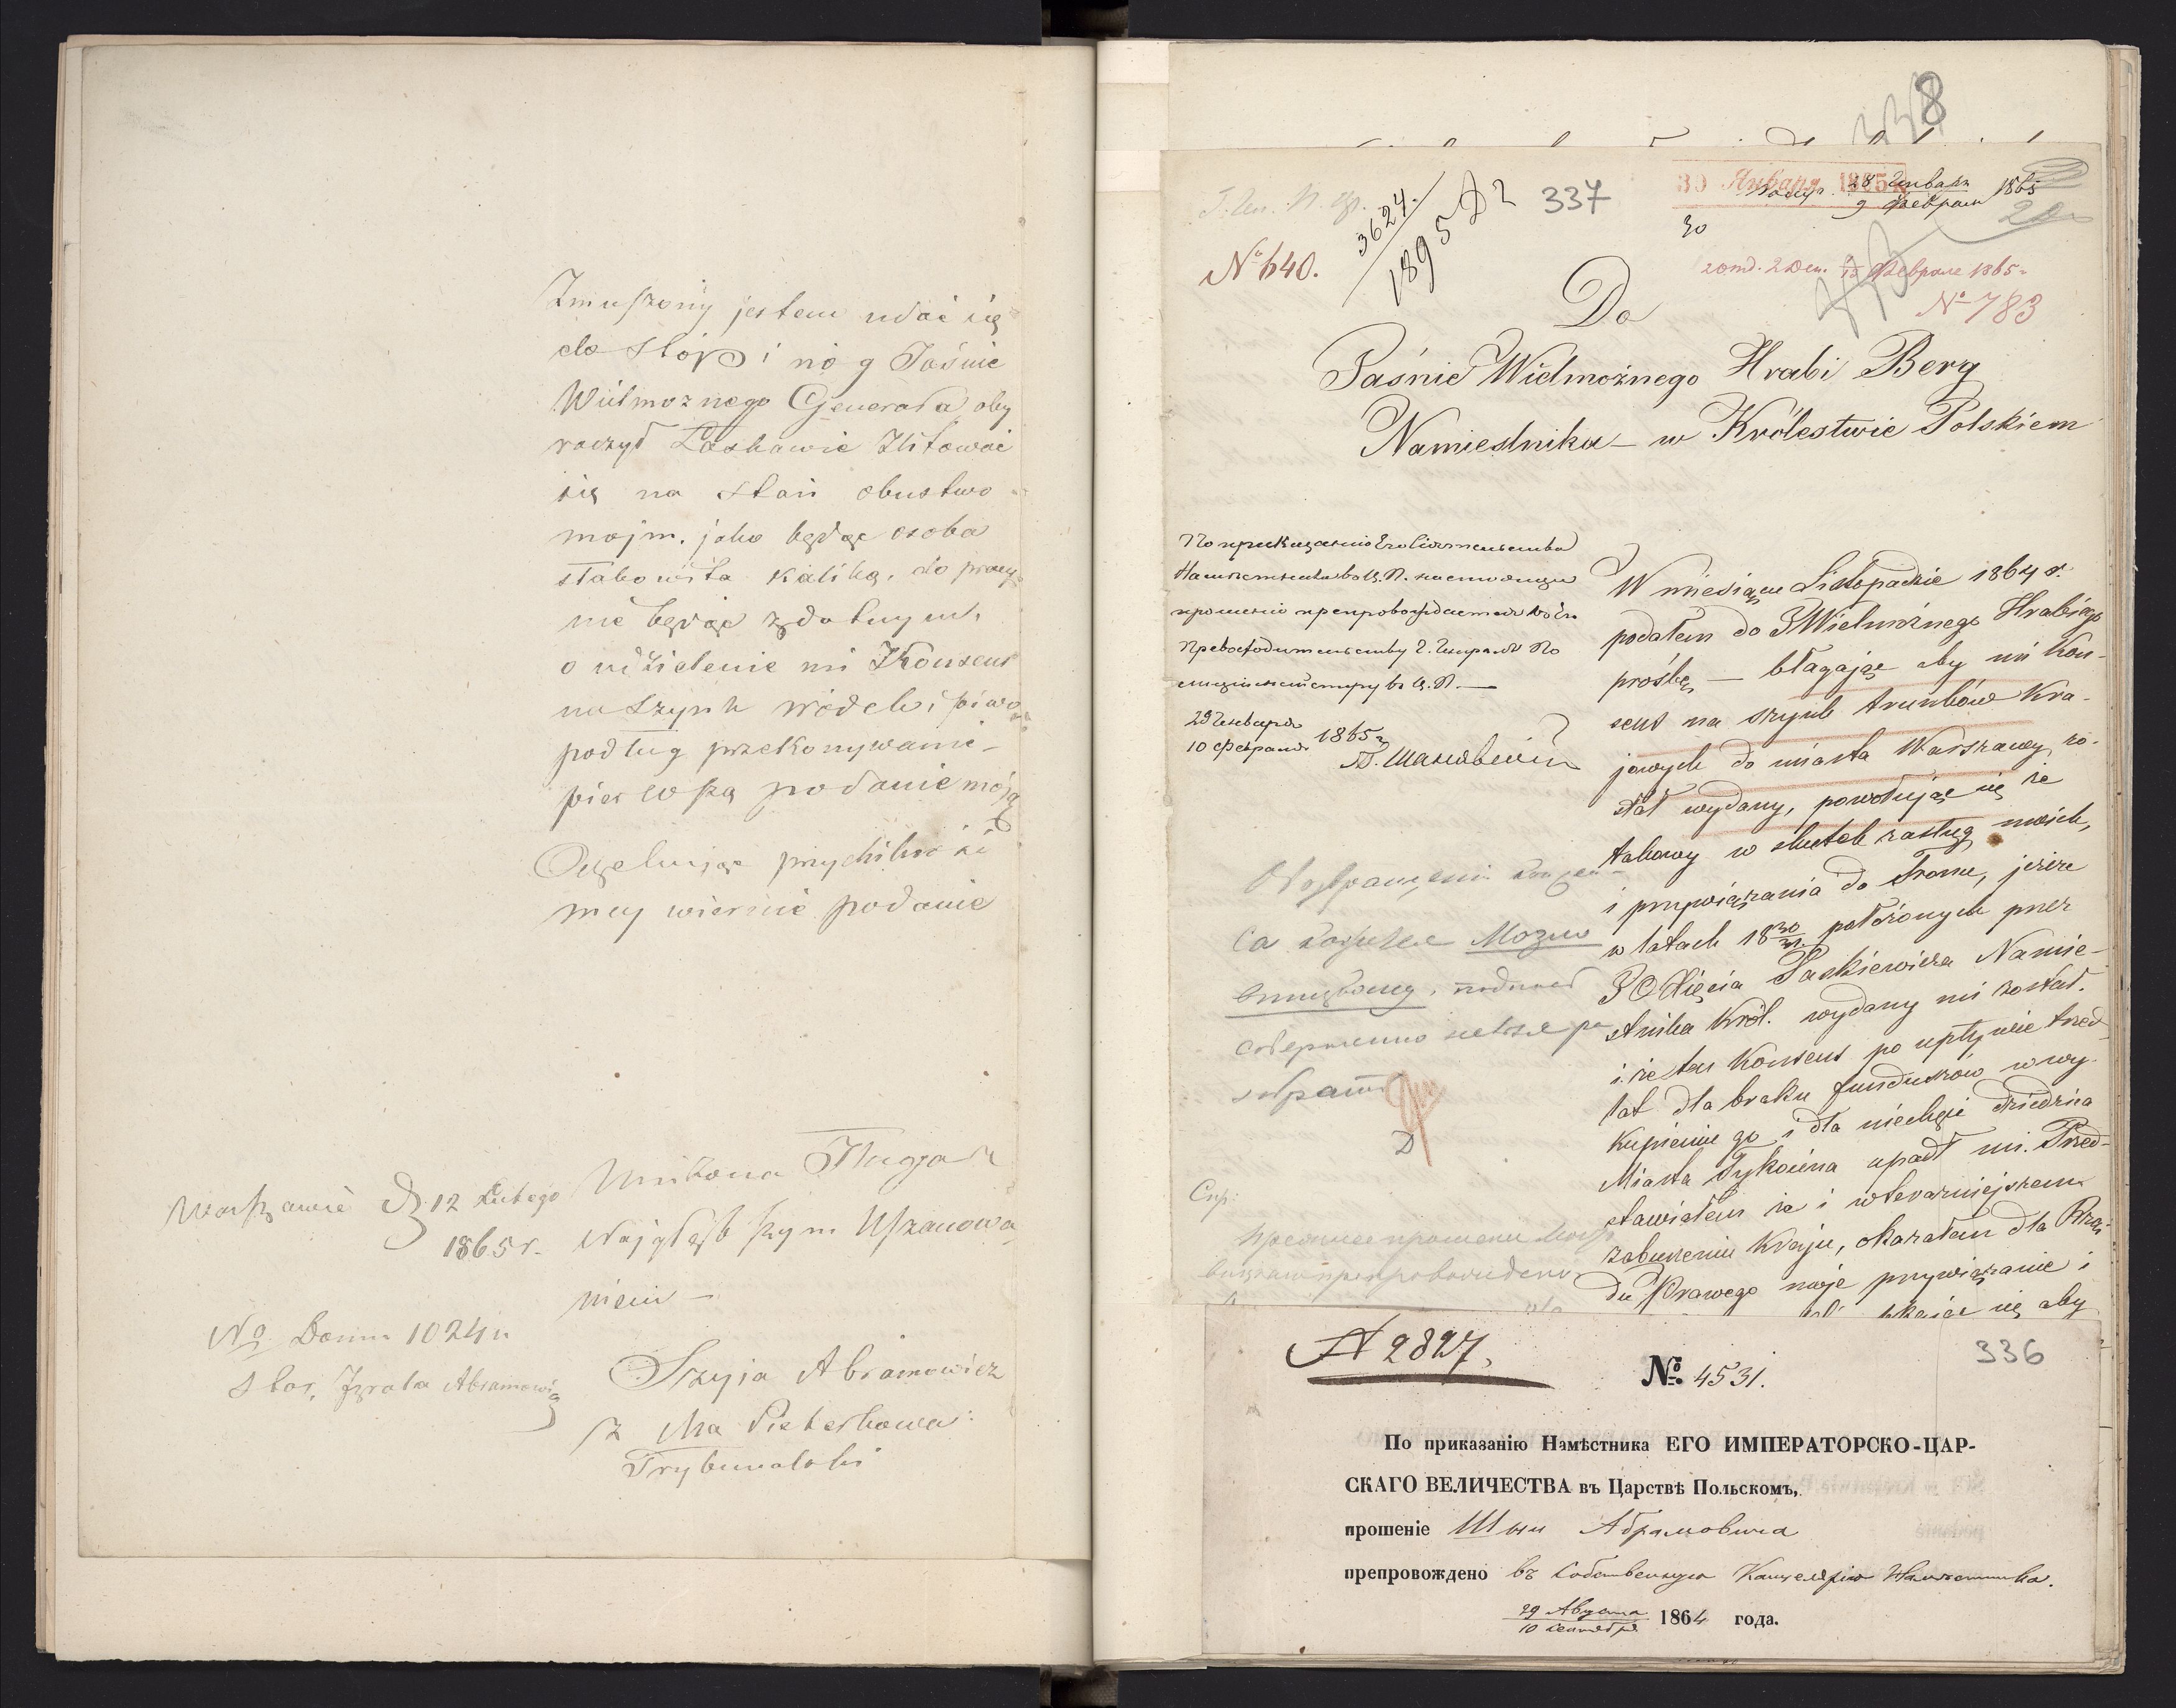 Zmuszony jestem udać się
do stóp i nóg Jaśnie
Wielmoznego Generała, oby
raczył Łaskawie Zlitować
się na stan obustwo
mojm. jako będąc osoba
słabowita kaliką, do pracy
nie będąc zdatnym.
o udzielenie mi Konsens
na szynk wódeki piwo
podług przekonywanie
pierwszą podanie moją
Oczekując przychilność
mey wiernie podanie
Warszawie D 12 Lutego
1865 r.
No Domu 1024 u
star. Izraela Abramowicz
Unirzona Sługa z
Najgłębszym Uszanowa
niem —
Szyja Abramowicz
z Ma Pieterkowa
Trybunalski
8
337
30 Января 1865
28 Января
9 Февраля 1865
30
No 640.
3624.
1895 D2
2 Ден. Февраля 1865
No 783
Do
Jaśnie Wielmożnego Hrabi Berg
Namiestnika w Królestwie Polskiem
По приказанію Его Сіятельства
Намѣстника въ Ц. П. настоящее
прошеніе препровождается къ Его
Превосходительству Г. Генералъ По
лиціймейстеру въ Ц. П. —
29 Января
10 Февраля 1865 г.
W miesiącu Listopadzie 1864 r.
podałem do JWielmożnego Hrabiego
prośbę — błagając aby mi Kon-
sens na szynk trunków Kra-
jowych do miasta Warszawy, zo-
stał wydany, powołując się że
takowy w skutek zasług moich,
i przywiązania do Tronu, jeszcze
w latach 18 30/31 położonych przez
JO Xięcia Paskiewicza Namie-
stnika Król. wydany mi został.
i że ten Konsens po upływie trzech
lat dla braku funduszów w wy-
kupieniu go i dla niechęci dziedzica
Miasta Tykocina upadł mi. Przed-
stawiałem że i w teraźniejszem
zaburzeniu Kraju, okazałem dla Rzą-
du Prawego moje przywiązanie i
się aby
Спр:
N 2827,
336
№ 4531.
По приказанію Намѣстника ЕГО ИМПЕРАТОРСКО-ЦАР-
СКАГО ВЕЛИЧЕСТВА въ Царствѣ Польскомъ,
прошеніе Шыи Абрамовича
препровождено въ Собственную Канцелярію Намѣстника.
29 Августа
10 Сентября 1864 года.